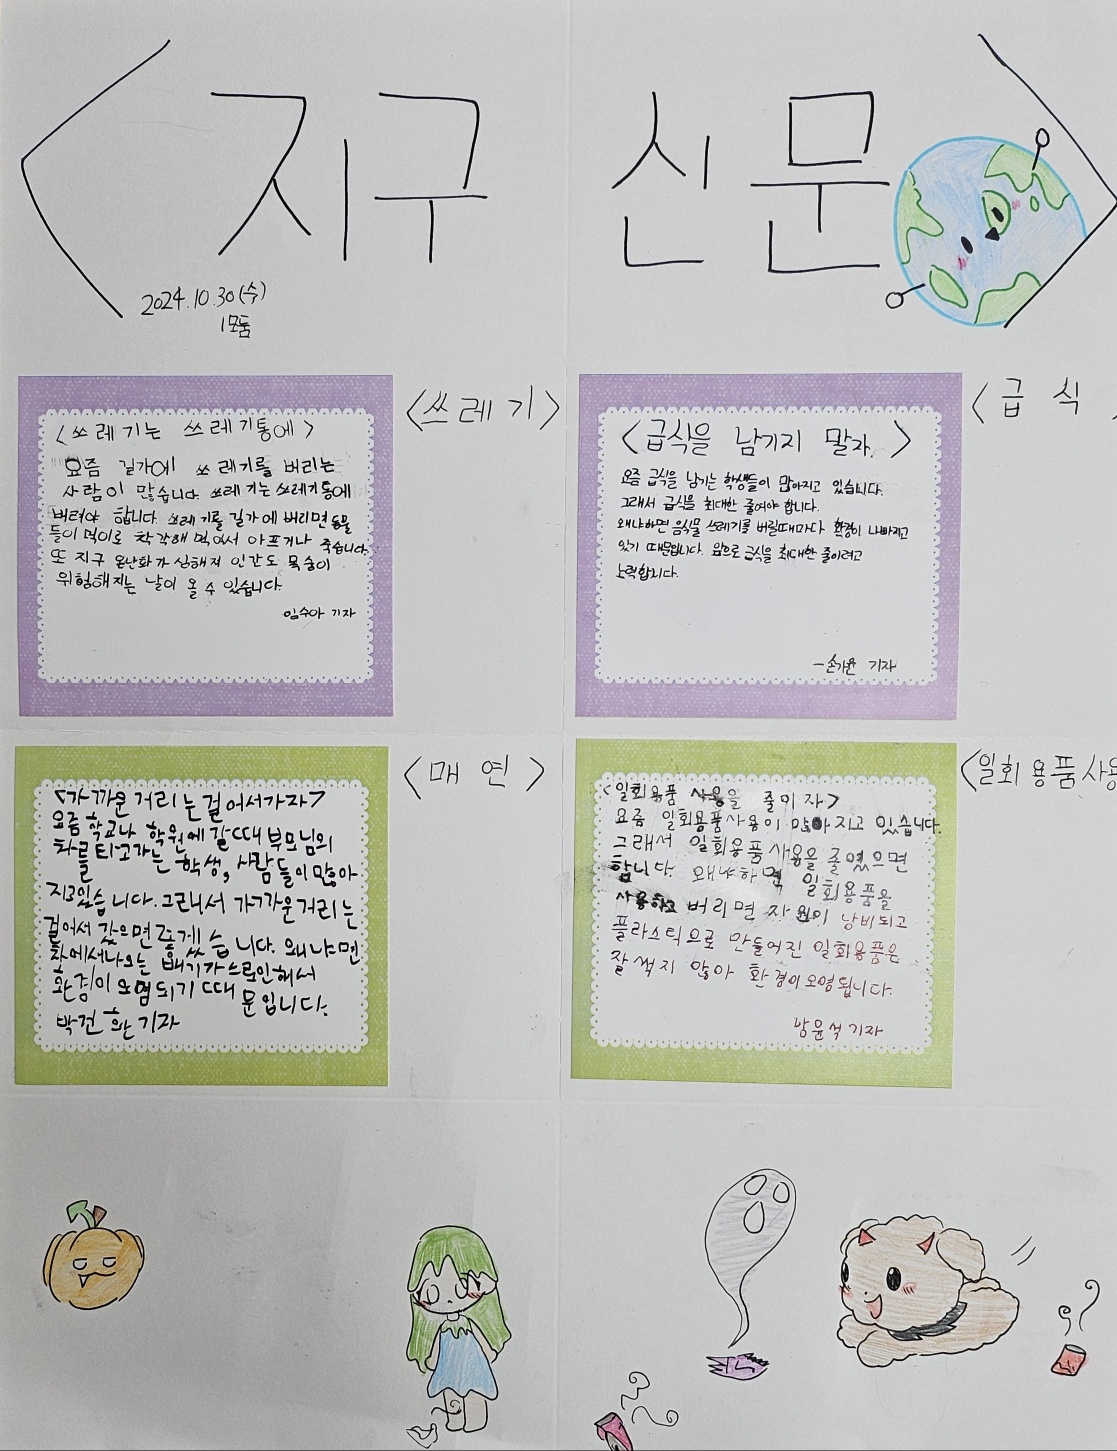 <지구 신문>
2024.10.30(수)
1모둠
<쓰레기>
<쓰레기는 쓰레기통에>
요즘 길가에 쓰레기를 버리는
사람이 많습니다. 쓰레기는 쓰레기통에
버려야 합니다. 쓰레기를 길가에 버리면 동물
들이 먹이로 착각해 먹어서 아프거나 죽습니다.
또 지구 온난화가 심해져 인간도 목숨이
위험해지는 날이 올 수 있습니다.
임수아 기자
<급식
<급식을 남기지 말자.>
요즘 급식을 남기는 학생들이 많아지고 있습니다.
그래서 급식을 최대한 줄여야 합니다.
왜냐하면 음식물 쓰레기를 버릴때마다 환경이 나빠지고
있기 때문입니다. 앞으로 급식을 최대한 줄이려고
노력합시다.
-손가윤 기자
<매연>
<가까운거리는걸어서가자>
요즘 학교나 학원에갈때 부모님의
차를 타고가는 학생, 사람들이 많아
지고있습니다. 그래서 가까운거리는
걸어서 갔으면 좋겠습니다. 왜냐면
차에서나오는 배기가스로인해서
환경이 오염되기 때문입니다.
박건환 기자
<일회용품사용
<일회용품 사용을 줄이자>
요즘 일회용품사용이 많아지고 있습니다.
그래서 일회용품사용을 줄였으면
합니다. 왜냐하면 일회용품을
사용하고 버리면 자원이 낭비되고
플라스틱으로 만들어진 일회용품은
잘 썩지 않아 환경이오염됩니다.
남윤석기자